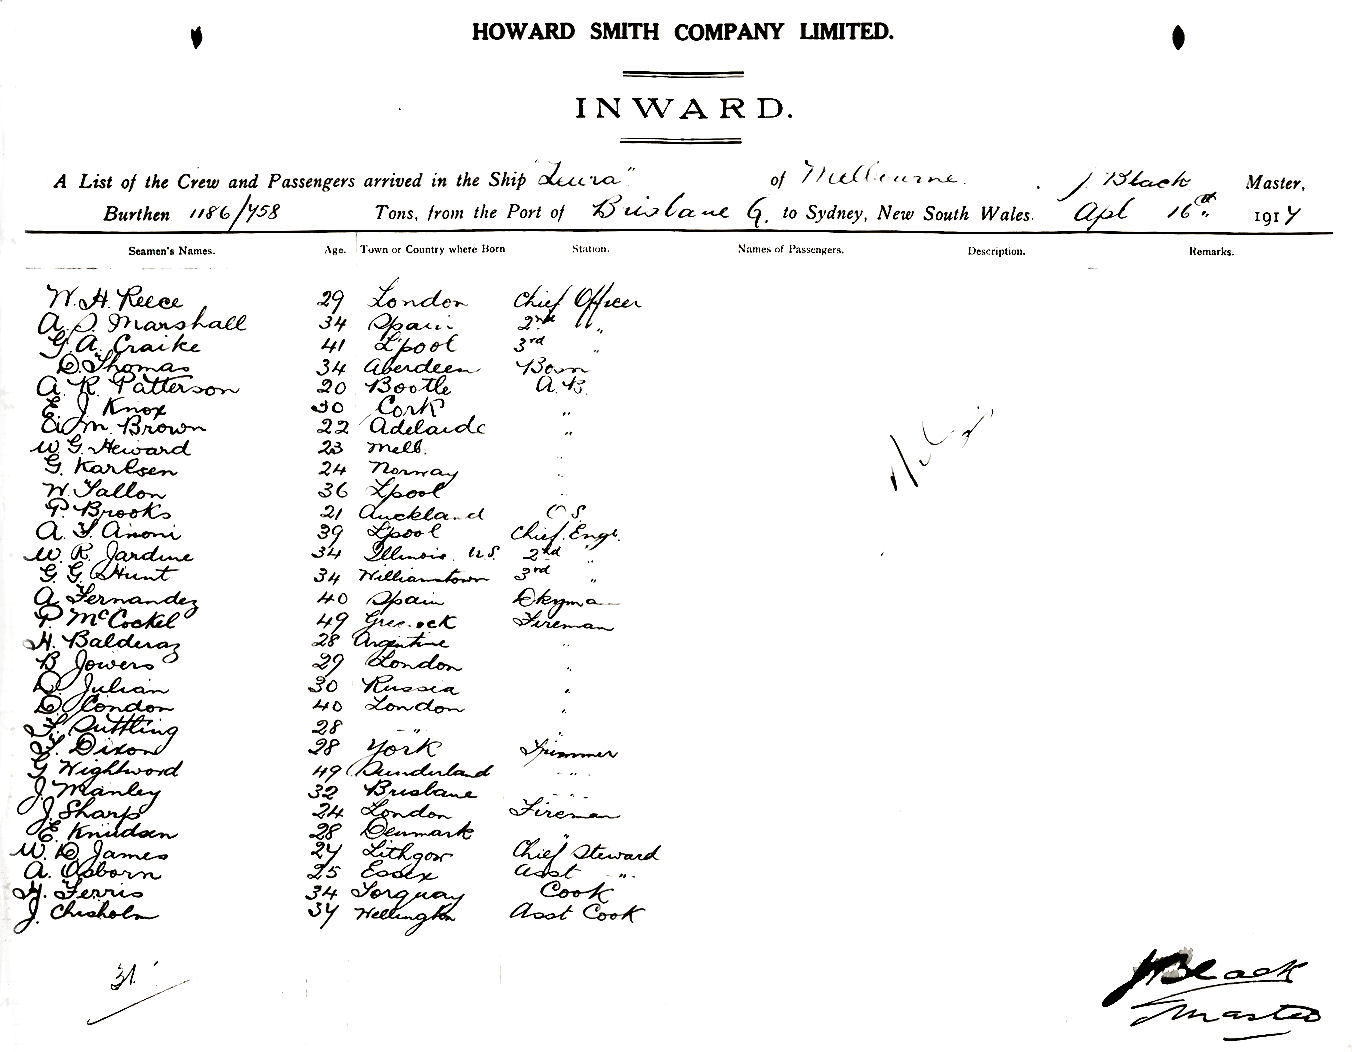 HOWARD SMITH COMPANY LIMITED.
INWARD.
A List of the Crew and Passengers arrived in the Ship "Leura" of Melbourne. J Black Master,
Burthen 1186/758 Tons, from the Port of Brisbane Q. to Sydney, New South Wales. Apl 16th 1917
Seamen's Names. Age. Town or Country where Born Station. Names of Passengers. Description. Remarks.
W. H. Reece 29 London Chief Officer
A. S. Marshall 34 Spain 2nd "
G. A. Craike 41 L'pool 3rd "
D. Thomas 34 Aberdeen Bosn
A. R. Patterson 20 Bootle A.B.
E. J Knox 30 Cork "
E. M. Brown 22 Adelaide "
W. G. Heward 23 Melb. "
G. Karlsen 24 Norway "
W. Fallon 36 Lpool "
P. Brooks 21 Auckland O.S.
A. F. Anoni 39 Lpool Chief Engr.
W. R. Jardine 34 Illinois U.S. 2nd "
G. G. Hunt 34 Williamstown 3rd "
A. Fernandez 40 Spain Dkyman
P. McCockel 49 Greenock Fireman
H. Balderaz 28 Argentine "
B. Jowers 29 London "
D. Julian 30 Russia "
D. London 40 London "
F. Suttling 28 " "
F. Dixon 28 York Trimmer
G Wightword 49 Sunderland "
J. Manley 32 Brisbane "
J. Sharp 24 London Fireman
E. Knudsen 28 Denmark "
W. D. James 27 Lithgow Chief Steward
A. Osborn 25 Essex Asst "
H. Ferris 34 Torquay Cook
J. Chisholm 37 Wellington Asst Cook
31
J Black
Master